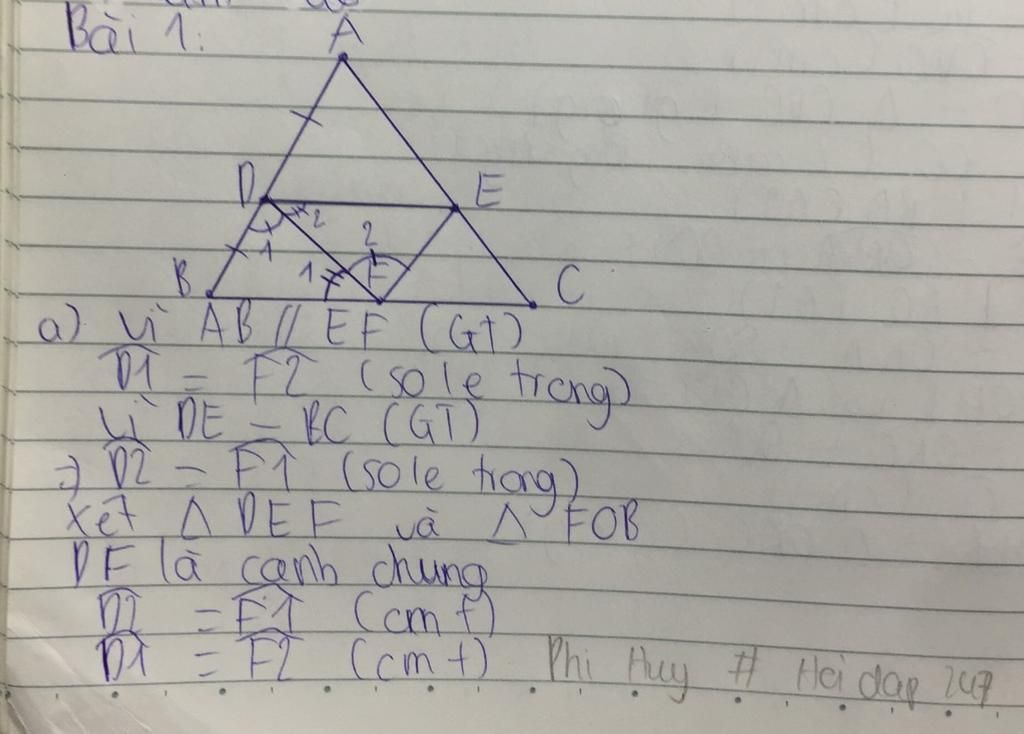 Bài 1:
A
D
E
2
1
2
B
1
F
C
a) Vì AB // EF (GT)
D1 = F2 (so le trong)
Vì DE = BC (GT)
=) D2 = F1 (so le trong)
Xét Δ DEF và Δ FOB
DF là cạnh chung
D2 = F1 (cmt)
D1 = F2 (cmt)
Phi Huy # Hoi dap 247